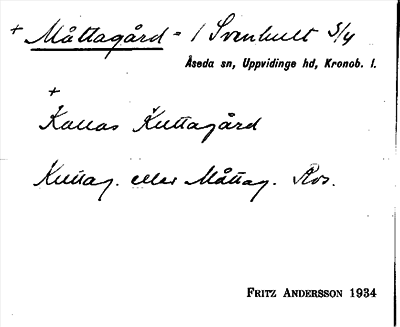 + Måttagård = 1 Svenhult 3/4
Åseda sn, Uppvidinge hd, Kronob. l.
+
Kallas Kuttagård
Kuttag. eller Måttag. Ros.
FRITZ ANDERSSON 1934